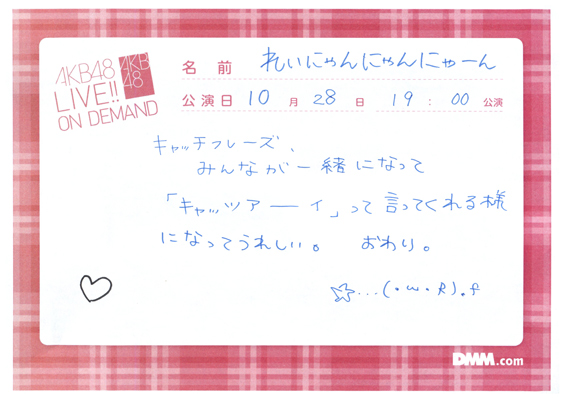 AKB48
LIVE!!
ON DEMAND
AKB
48
名前 れいにゃんにゃんにゃーん
公演日 10月28日 19:00公演
キャッチフレーズ、
みんなが一緒になって
「キャッツアーイ」って言ってくれる様
になってうれしい。 おわり。
☆...(・ω・
DMM.com